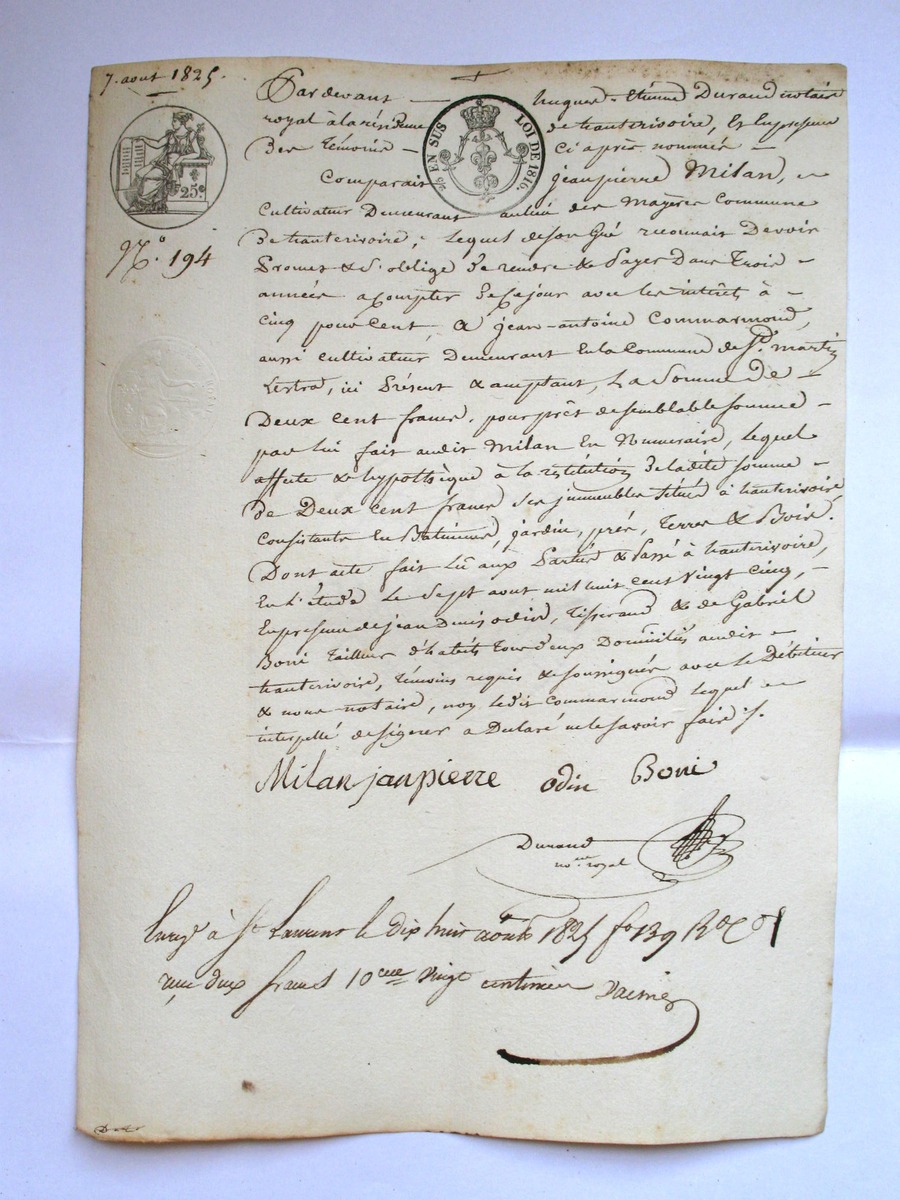 7. aout 1825.
Pardevant hugues Etienne Durand notaire
royal à la résidence de hauterivoire, et En présence
Des témoins ci après nommés
EN SUS LOI DE 1816.
25c
Comparait jean pierre Milan,
Cultivateur Demeurant au lieu des mayeres Commune
N.o 194
De hauterivoire, lequel de son Gré reconnait Devoir
Promet & S'oblige De rendre & Payer Dans Trois
années a Compter de Ce jour avec les intérêts à
Cinq pour Cent, a jean-antoine Commarmond,
aussi cultivateur Demeurant En la Commune de St. martin
Lestra, ici Présent & acceptant, La Somme De
Deux cent francs, pour prêt de semblable somme
par lui fait audit Milan En Numeraire, lequel
affecte & hypothèque à la restitution de ladite somme
de Deux cent francs ses immeubles situés à hauterivoire,
Consistants En Batiments, jardin, prés, Terres & Bois.
Dont acte fait Lu aux Parties & Passé à hauterivoire,
En L'étude Le Sept aout mil huit cent Vingt Cinq,
En présence de jean Denis odin, Tisserand & de Gabriel
Boni Tailleur d'habits Tous deux Domiciliés audit
hauterivoire, témoins requis & soussignés avec le Débiteur
& nous notaire, non ledit Commarmond lequel
interpellé de signer a Déclaré ne le savoir faire
Milan janpierre odin Boni
Durand
nore. royal
Enregé à St Laurent le dix huit août 1825 fo 139
reçu deux francs 10eme vingt centimes